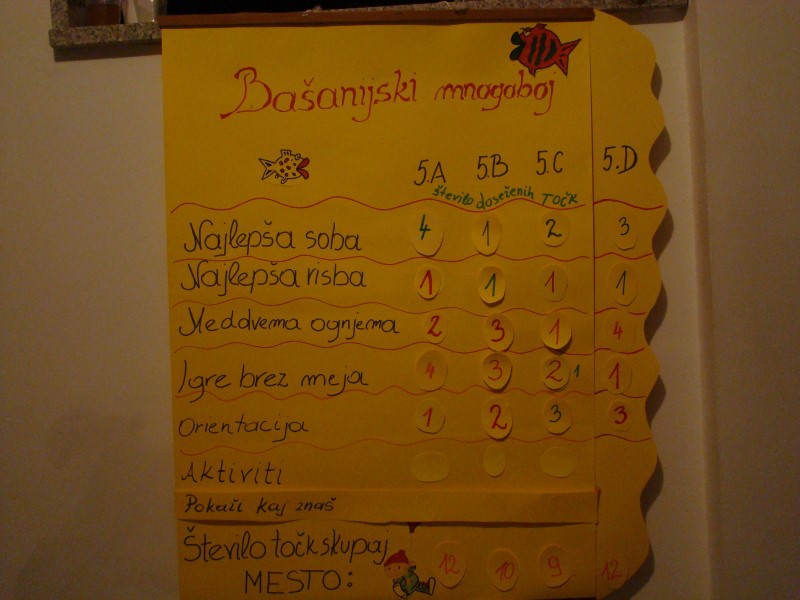 Bašanijski mnogoboj
5.A 5.B 5.C 5.D
število doseženih TOČK
Najlepša soba 4 1 2 3
Najlepša risba 1 1 1 1
Meddvema ognjema 2 3 1 4
Igre brez meja 4 3 2 1 1
Orientacija 1 2 3 3
Aktiviti
Pokaži kaj znaš
Število točk skupaj 12 10 9 12
MESTO: